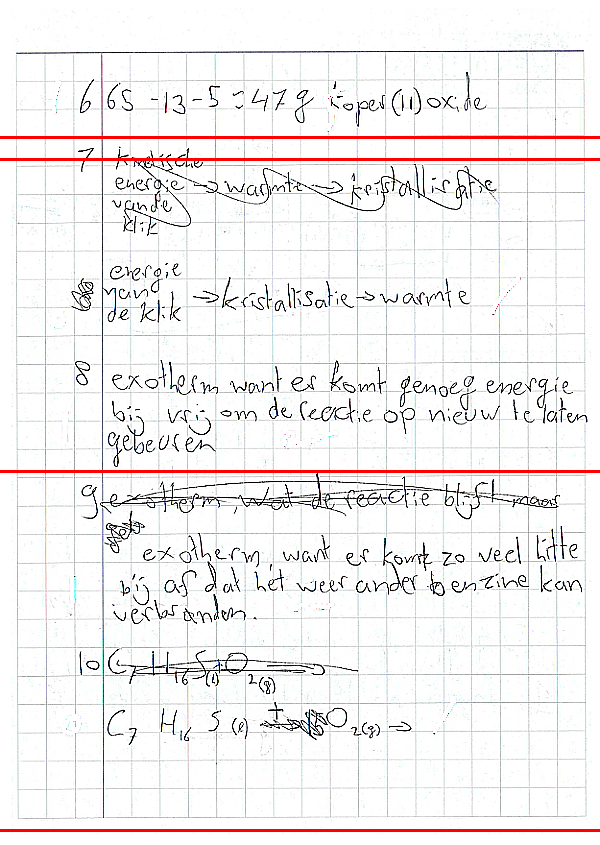 6 65 - 13 - 5 = 47 g koper(II)oxide
7 kinetische
energie → warmte → kristallisatie
van de
klik
energie
van
de klik → kristallisatie → warmte
8 exotherm want er komt genoeg energie
bij vrij om de reactie op nieuw te laten
gebeuren
9 exotherm, wat de reactie blijft maar
exotherm, want er komt zo veel hitte
bij af dat het weer ander benzine kan
verbranden.
10 C7 H16 S(l) O2(g)
C7 H16 S (l) + O2(g) →